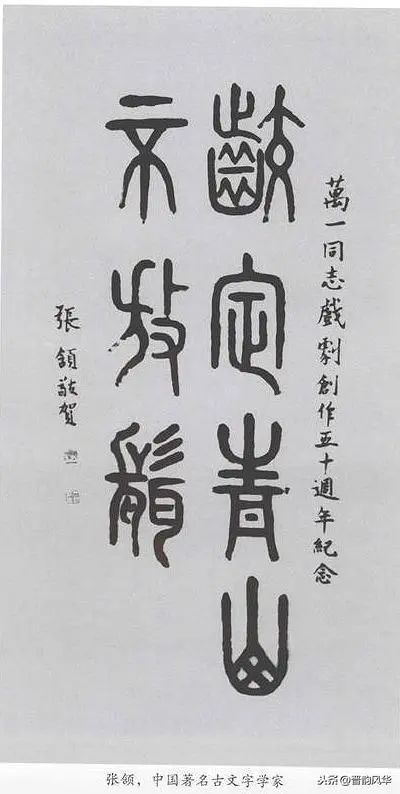 萬一同志戲劇創作五十週年紀念
齩定青山
不放鬆
張頷敬賀
张颔，中国著名古文字学家
头条@晋韵风华